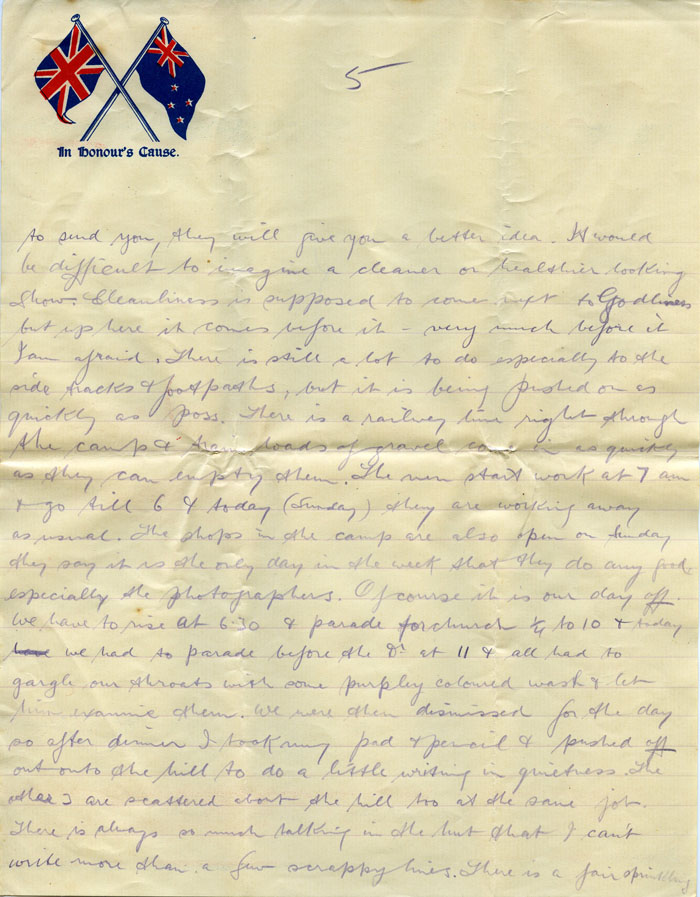 In Honour's Cause.
5
to send you, they will give you a better idea. It would
be difficult to imagine a cleaner or healthier looking
show. Cleanliness is supposed to come next to Godliness
but up here it comes before it - very much before it
I am afraid. There is still a lot to do especially to the
side tracks & footpaths, but it is being pushed on as
quickly as poss. There is a railway line right through
the camp & train loads of gravel come in as quickly
as they can empty them. The men start work at 7 am
& go till 6 & today (Sunday) they are working away
as usual. The shops in the camp are also open on Sunday
they say it is the only day in the week that they do any good,
especially the photographers. Of course it is our day off.
We have to rise at 6.30 & parade for church ¼ to 10 & today
we had to parade before the Dr at 11 & all had to
gargle our throats with some purpley coloured wash & let
him examine them. We were then dismissed for the day
so after dinner I took my pad & pencil & pushed off
out onto the hill to do a little writing in quietness. The
other 3 are scattered about the hill too at the same job.
There is always so much talking in the hut that I can't
write more than a few scrappy lines. There is a fair sprinkling